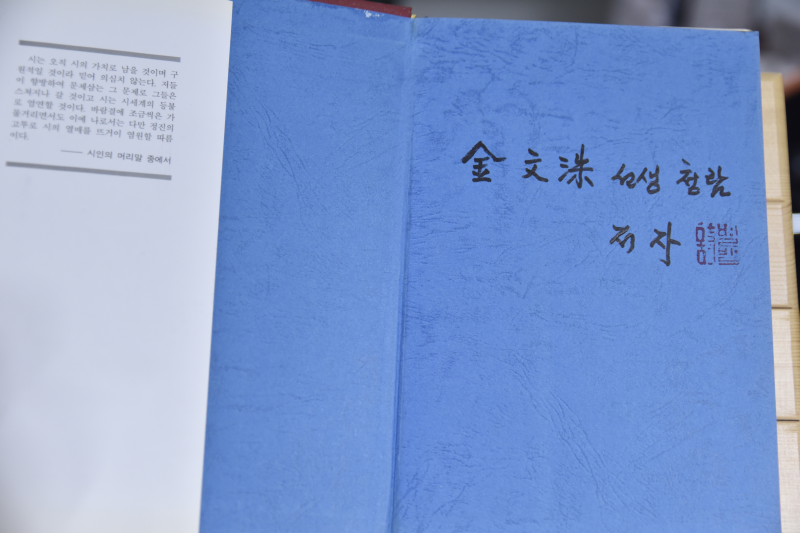 시는 오직 시의 가치로 남을 것이며 구
원적일 것이라 믿어 의심치 않는다. 저들
이 향방하여 문제삼는 그 문제로 그들은
스쳐지나 갈 것이고 시는 시세계의 등불
로 열연할 것이다. 바람결에 조금씩은 가
물거리면서도 이에 나로서는 다만 정진의
고투로 시의 열매를 뜨거이 염원할 따름
이다.
── 시인의 머리말 중에서
金文洙 선생 청람
저자